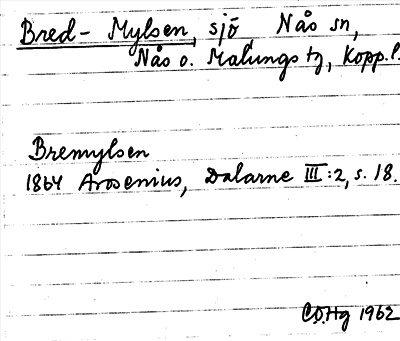 Bred-Mylsen, sjö, Nås sn,
Nås o. Malungs tg, Kopp. l.
Bremylsen
1864 Arosenius, Dalarne III:2, s. 18.
CDHg 1962